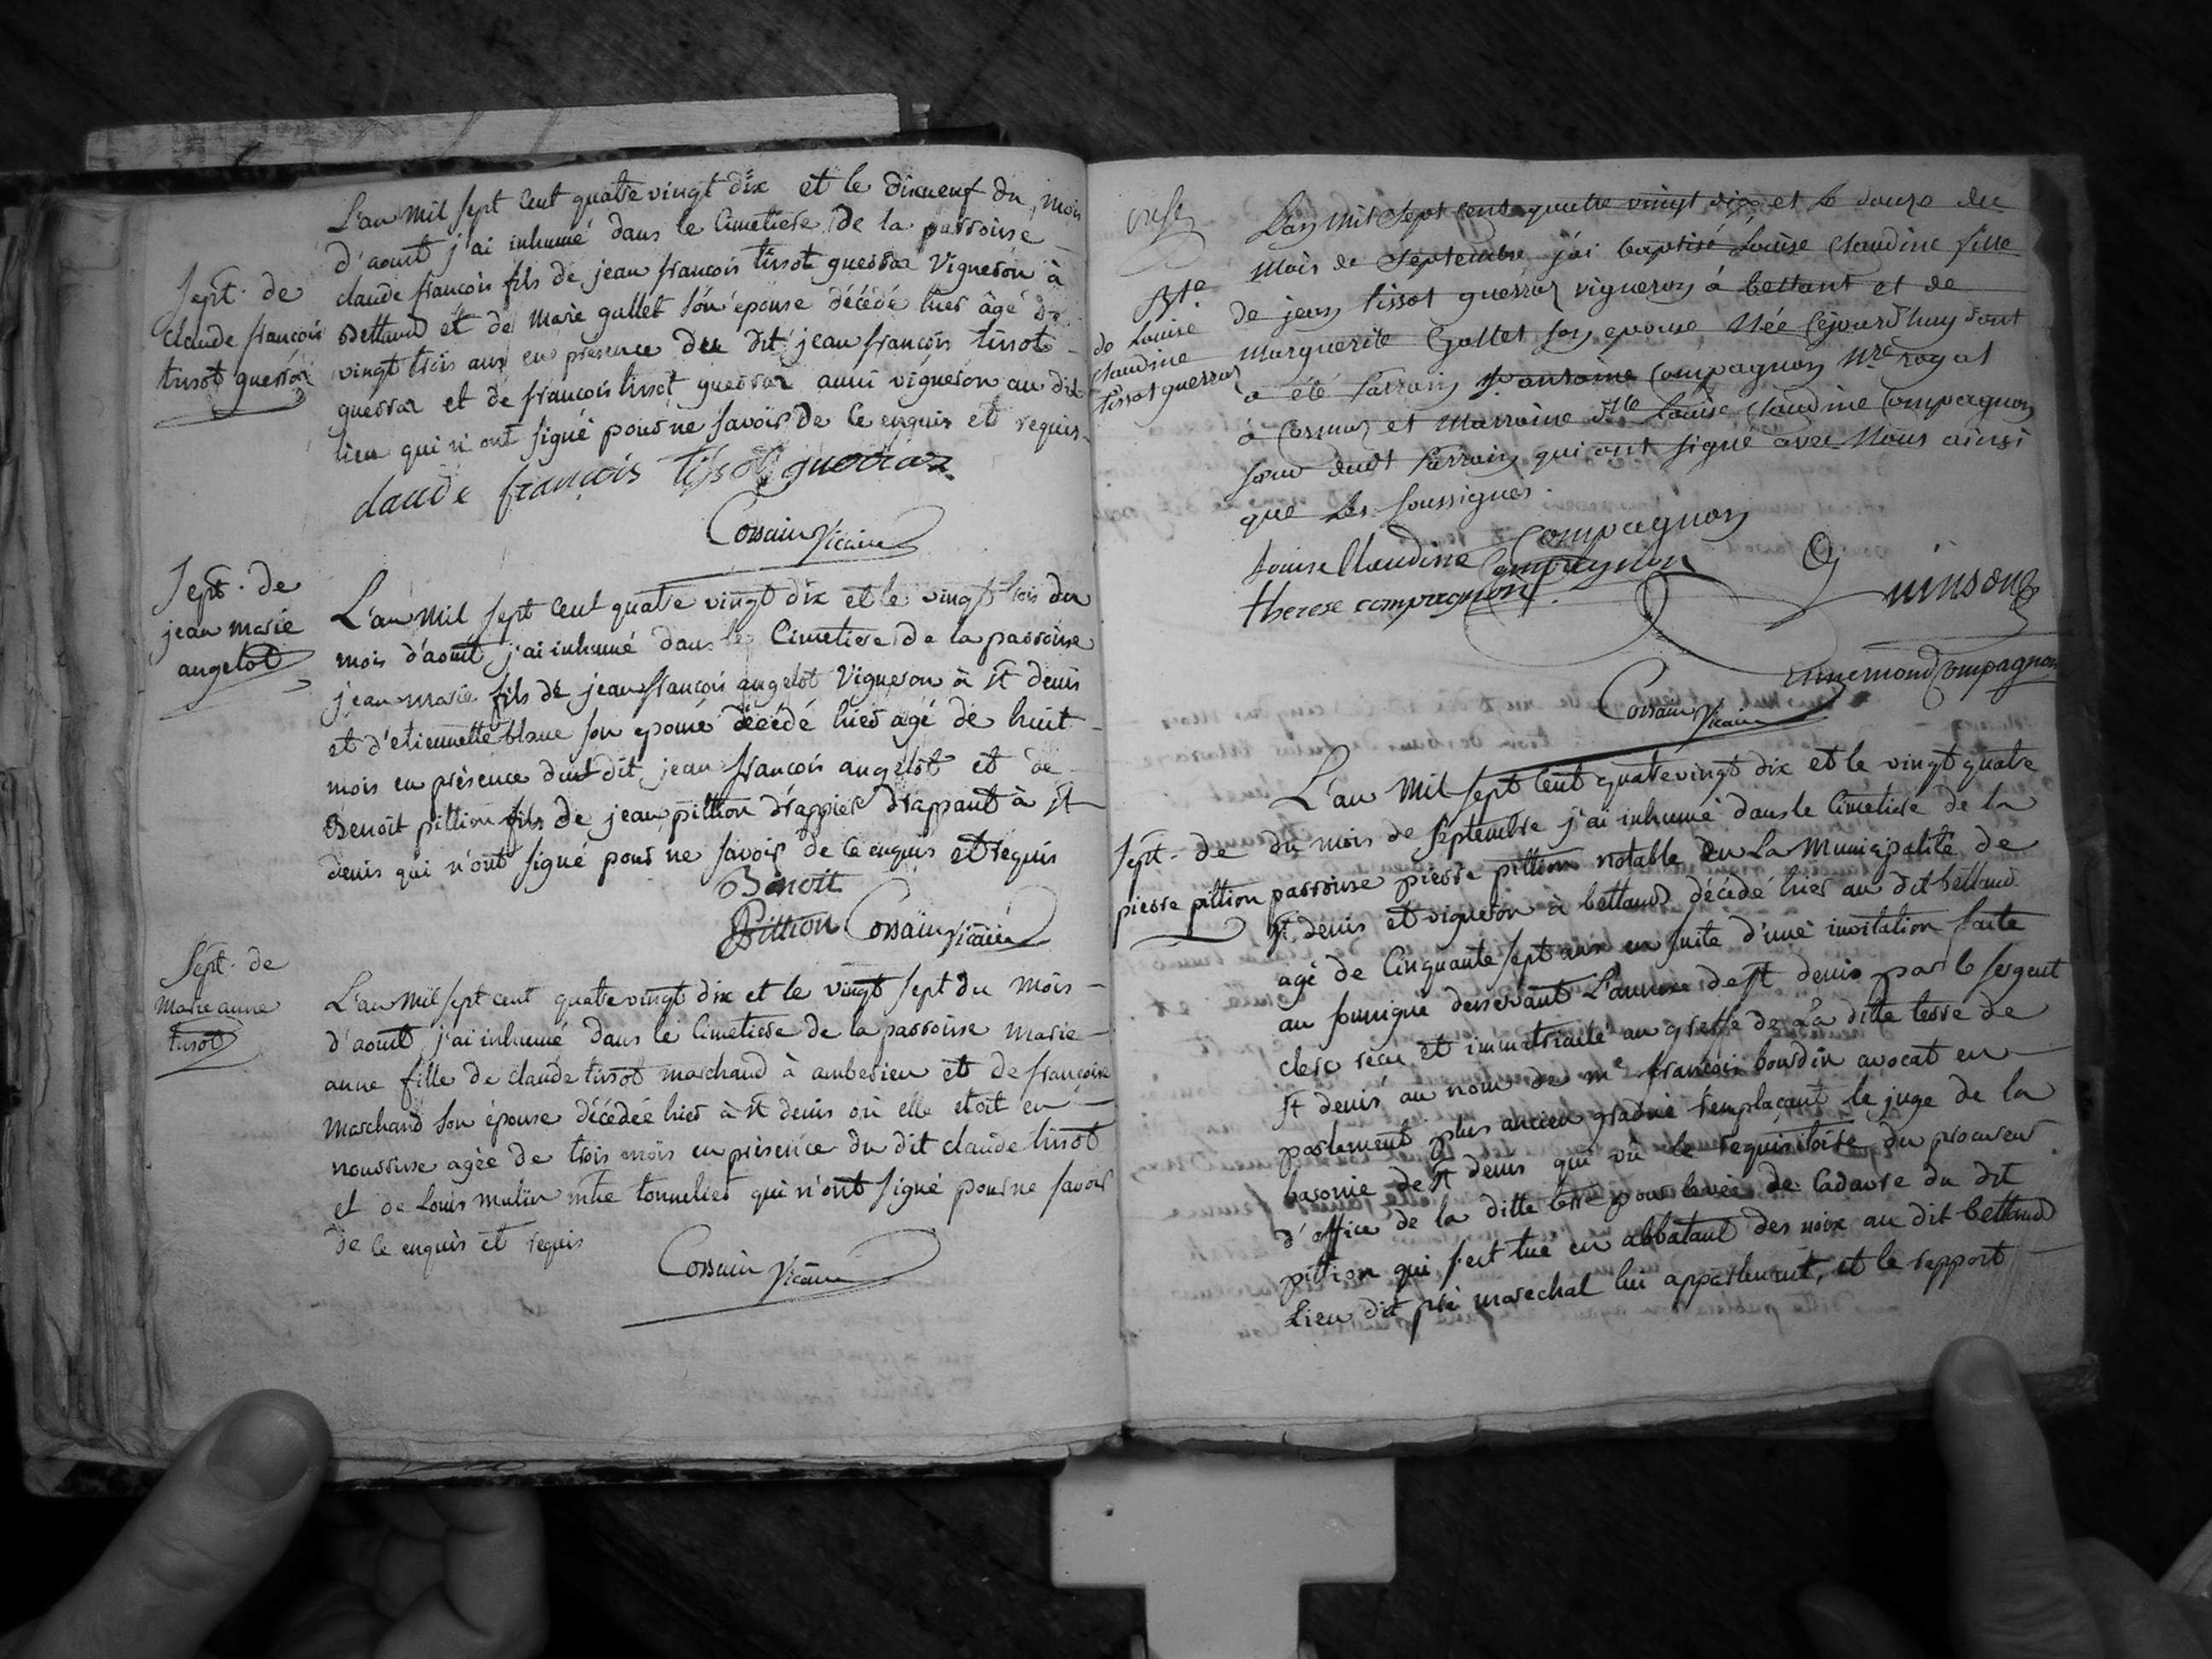 L'an mil sept cent quatre vingt dix et le dixneuf du mois
d'aout j'ai inhumé dans le Cimetiere de la parroisse
Sept. de
Claude françois
tissot guerraz
claude françois fils de jean françois tissot guerraz Vigneron à
Bettand et de marie gallet son épouse décédé hier âgé de
vingt trois ans en presence du dit jean françois tissot
guerraz et de françois tissot guerraz aussi vigneron au dit
lieu qui n'ont signé pour ne savoir de ce enquis et requis
claude françois tissot guerraz
Corsain Vicaire
Sept. de
jean marie
angelot
L'an mil sept cent quatre vingt dix et le vingt trois du
mois d'aout j'ai inhumé dans le Cimetiere de la parroisse
jean marie fils de jean françois angelot Vigneron à st denis
et d'etiennette blanc son epouse décédé hier agé de huit
mois en présence dudit jean françois angelot et de
Benoit pittion fils de jean pittion drappier drappant à st
denis qui n'ont signé pour ne savoir de ce enquis et requis
Benoit
Pittion Corsain Vicaire
Sept. de
Marie anne
tissot
L'an mil sept cent quatre vingt dix et le vingt sept du mois
d'aout j'ai inhumé dans le Cimetiere de la parroisse marie
anne fille de claude tissot marchand à amberieu et de françoise
marchand son épouse décédée hier à st denis où elle etoit en
nourrisse agée de trois mois en présence du dit claude tissot
et de Louis mulin mtre tonnelier qui n'ont signé pour ne savoir
de ce enquis et requis
Corsain Vicaire
L'an Mil Sept Cent quatre vingt dix et le douze du
mois de septembre j'ai baptisé Louise Claudine fille
Bte
de Louise
Claudine
tissot guerraz
de jean tissot guerraz vigneron à bettant et de
Marguerite Gallet son epouse Née cejourdhuy dont
a été Parrain Compagnon Nre royal
à et Marraine Dlle Louise Claudine Compagnon
soeur dudt Parrain qui ont signé avec Nous ainsi
que les soussignés.
Compagnon
Louise Claudine Compagnon
therese compagnon
Guinson
Ennemond Compagnon
Corsain Vicaire
L'an mil sept cent quatre vingt dix et le vingt quatre
Sept. de
pierre pittion
du mois de Septembre j'ai inhumé dans le Cimetiere de la
parroisse pierre pittion notable en La Municipalité de
st denis et vigneron à bettand décédé hier au dit bettand
agé de Cinquante sept ans en suite d'une invitation faite
au soussigné desservant L'annexe de st denis par le sergent
clerc recu et immatriculé au greffe de la ditte terre de
st denis au nom de me françois bourdin avocat en
parlement plus ancien gradué remplaçant le juge de la
baronie de st denis qui vu le requisitoire du procureur
d'office de la ditte terre pour levée de Cadavre du dit
pittion qui s'est tué en abbatant des noix au dit bettand
Lieu dit pré marechal lui appartenant, et le rapport